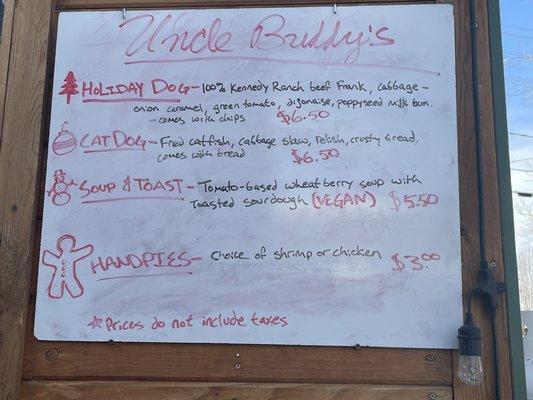 Uncle Buddy's
HOLIDAY DOG - 100% Kennedy Ranch beef Frank, cabbage -
onion caramel, green tomato, dijonaise, poppyseed milk bun.
- comes with chips $6.50
CATDOG - Fried catfish, cabbage slaw, relish, crusty bread,
comes with bread $6.50
SOUP & TOAST - Tomato-based wheatberry soup with
toasted sourdough (VEGAN) $5.50
HANDPIES - choice of shrimp or chicken $3.00
*Prices do not include taxes